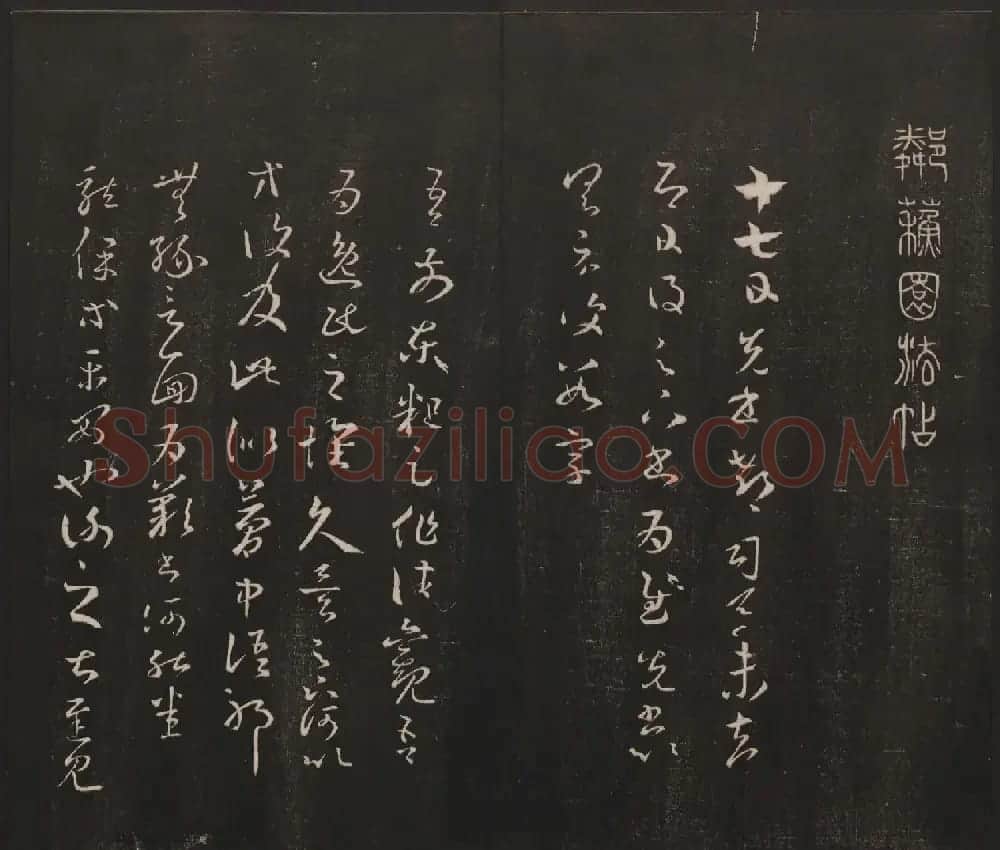 鄰蘇園法帖
十七日先書郗司馬未去
即日得足下書為慰先書以
具示復數字
吾前東粗足作佳觀吾
為逸民之懷久矣足下何以
方復及此似夢中語耶
無緣言面為歎書何能悉
龍保等平安也謝之甚遲見
Shufaziliao.COM